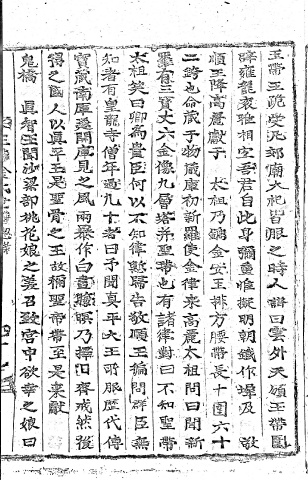 玉帶王跪受凡郊廟大祀皆服之時人讚曰雲外天頒玉帶圍
辟雍龍袞雅相宜吾君自此身彌重惟擬明朝鐵作墀及 敬
順王降高麗獻于 太祖乃鐫金安玉排方腰帶長十圍六十
二銙也命藏于物藏庫初新羅使金律來高麗太祖問曰聞新
羅有三寶丈六金像九層塔并聖帶也有諸律對曰不知聖帶
太祖笑曰卿爲貴臣何以不知律慙歸告敬順王徧問群臣無
知者有皇龍寺僧年過九十者曰予聞眞平大王所服歷代傳
寶藏南庫遂開庫見之風雨暴作白晝 暝乃擇日齊戒然後
得之國人以眞平王是聖骨之王故稱聖帝帶至是來獻
鬼橋 眞智王聞沙梁部桃花娘之美召致宮中欲幸之娘曰